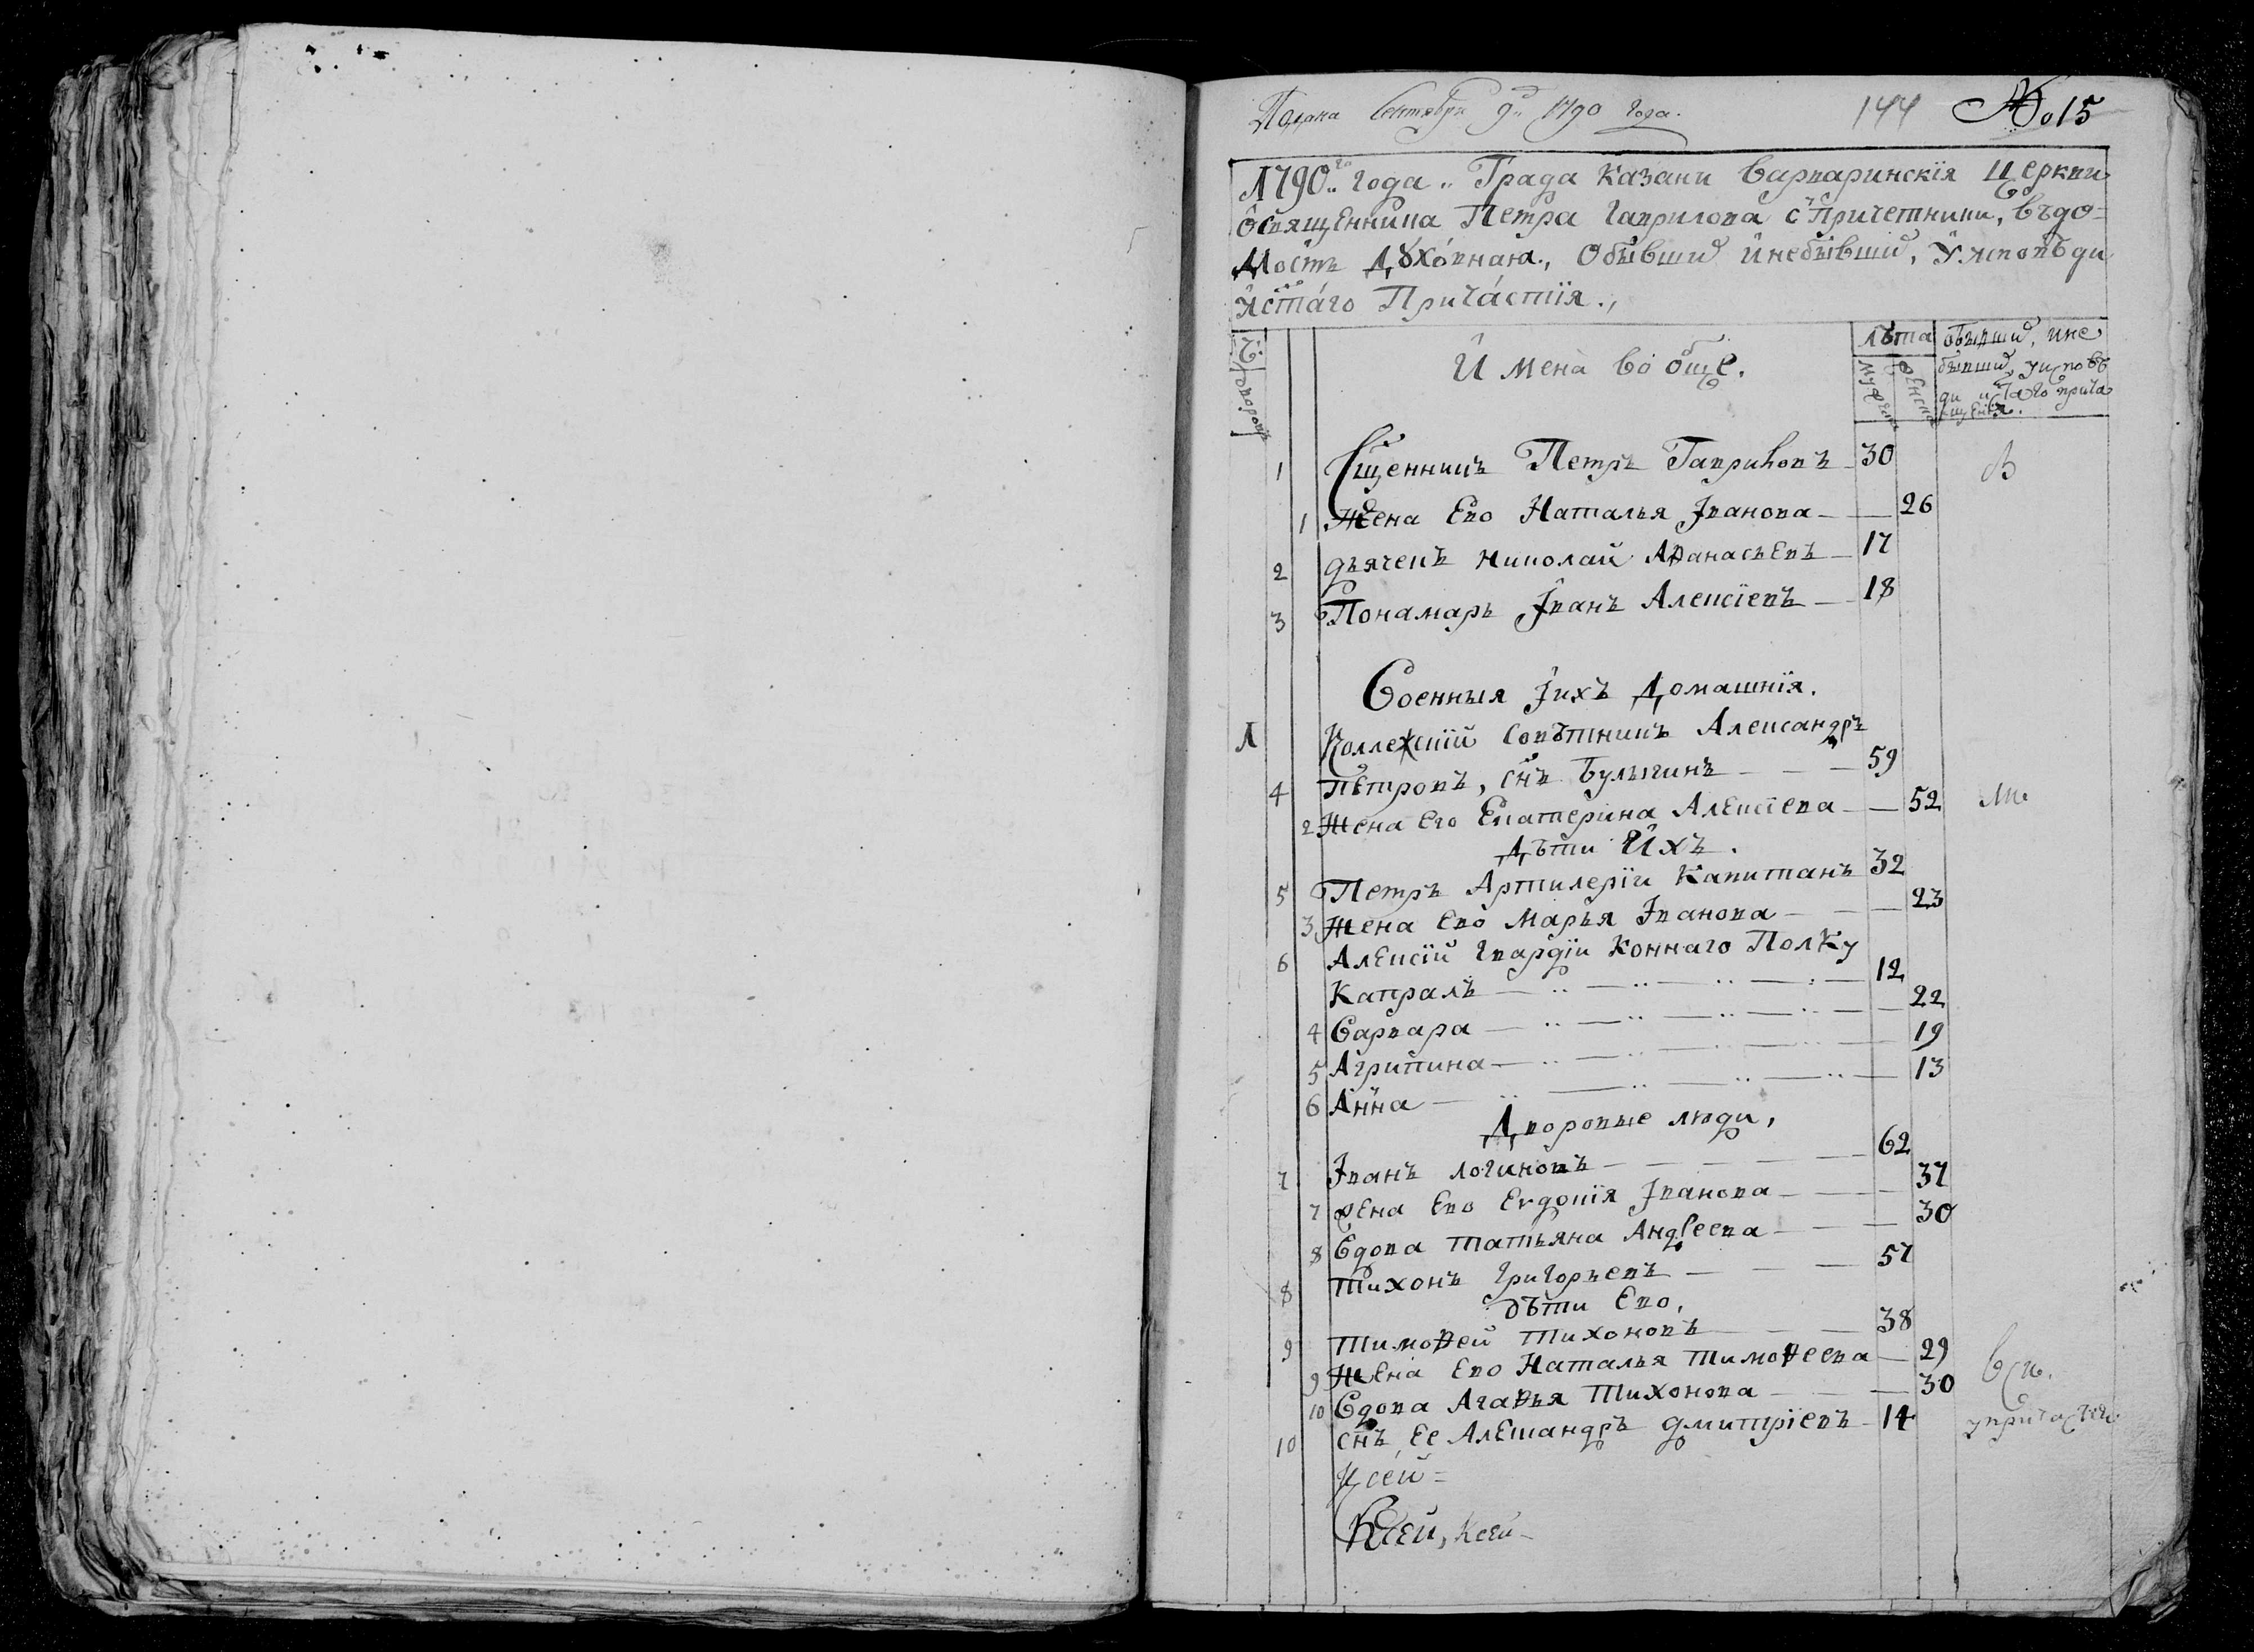 Подана Сентября 9г 1790 года.
144 №15
1790го года Града Казани Варваринскія Церкви
Освященника Петра Гаврилова с причетники, Вѣдо=
мость Духовная, О бывши инебывши, У исповѣди
и стаго Причастія.
Ч: дворовъ
Имена вообще.
Лѣта
Мужеск Женска
обывши, ине
бывши, уисповѣ
ди истаго прича
щенія.
1 Сщенникъ Петръ Гавриловъ 30
1 Жена Ево Наталья Іванова 26
2 дьячекъ Николай Аѳанасьевъ 17
3 Пономарь Іванъ Алексіевъ 18
Военныя Іихъ Домашнія.
1 Коллежскій Совѣтникъ Александръ
4 Петровъ, снъ Булыгинъ 59
2 Жена Его Екатерина Алексіева 52
Дѣти Ихъ.
5 Петръ Артилеріи Капитанъ 32
3 Жена Ево Марья Іванова 23
6 Алексій Гвардіи Коннаго Полку
Капралъ 12
4 Варвара 22
5 Агрипина 19
6 Анна 13
Дворовые люди,
7 Іванъ Логиновъ 62
7 Жена Ево Евдокія Іванова 37
8 Вдова Татьяна Андреева 30
8 Тихонъ Григорьевъ 57
дѣти Ево,
9 Тимоѳей Тихоновъ 38
9 Жена Ево Наталья Тимоѳеева 29
10 Вдова Агаѳья Тихонова 30
10 снъ Ее Александръ Дмитріевъ 14